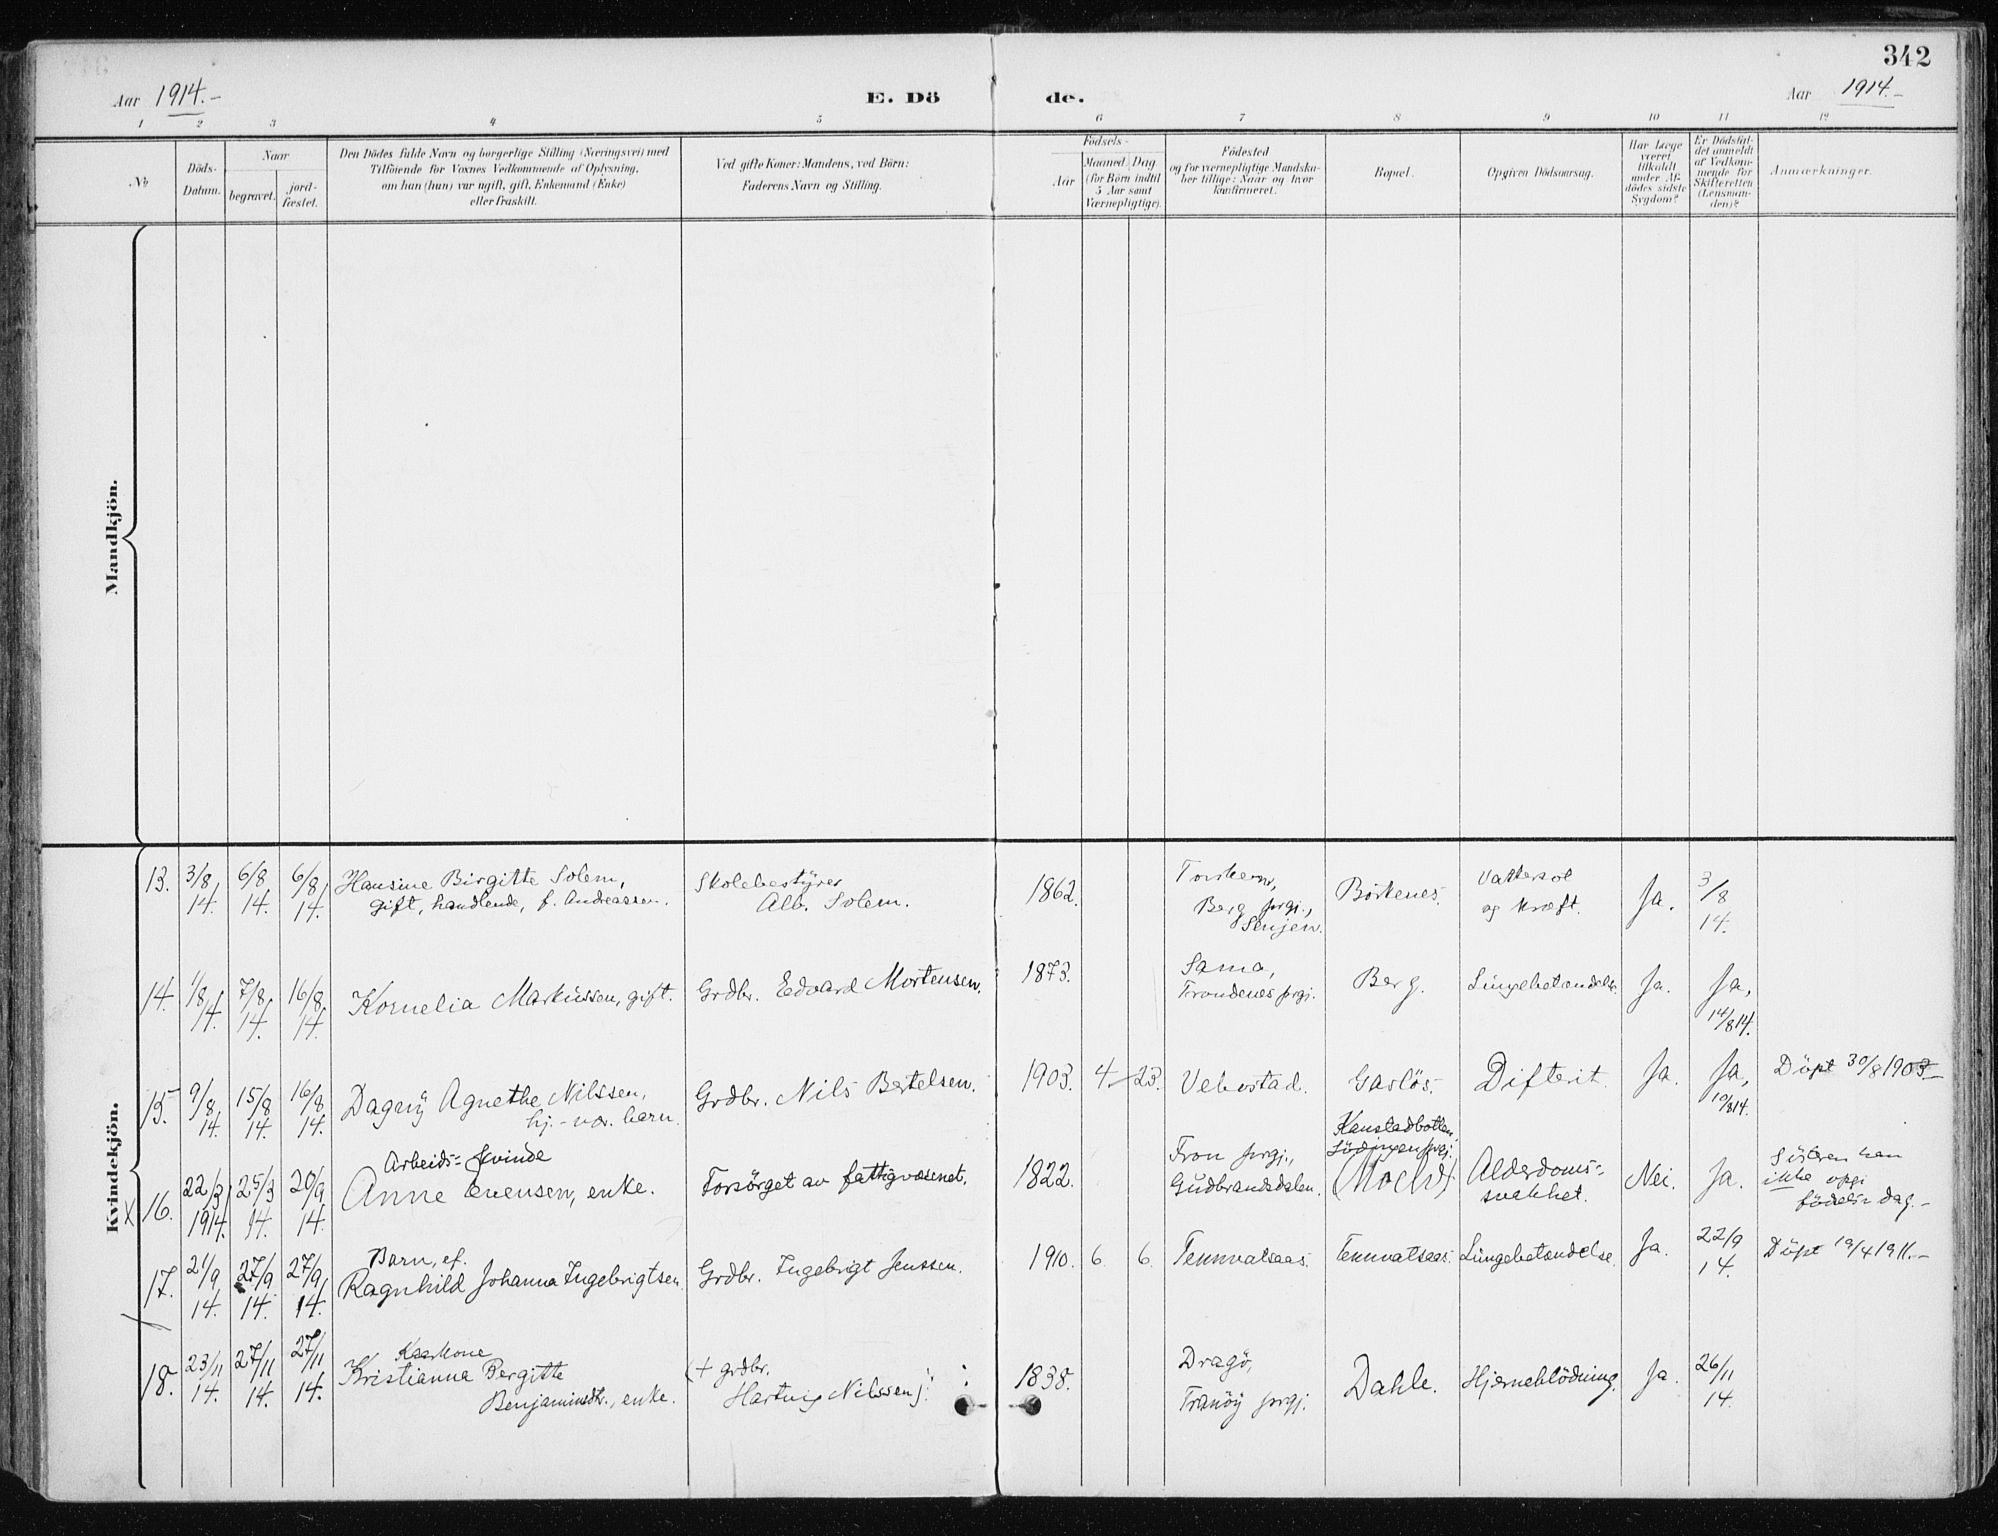 342
Aar 1914.-
E. Dö
de.
Aar 1914.-
1 2 3 4 5 6 7 8 9 10 11 12
No
Döds-
Datum.
Naar
begravet.
jord-
fæstet.
Den Dödes fulde Navn og borgerlige Stilling (Næringsvei) med
Tilföiende for Voxnes Vedkommende af Oplysning,
om han (hun) var ugift, gift, Enkemand (Enke)
eller fraskilt.
Ved gifte Koner: Mandens, ved Börn:
Faderens Navn og Stilling.
Födsels-
Aar
Maaned. Dag.
(for Börn indtil
5 Aar samt
Værnepligtige).
Födested
og for værnepligtige Mandska-
ber tillige: Naar og hvor
konfirmeret.
Bopæl.
Opgiven Dödsaarsag.
Har Læge
været
tilkaldt
under Af-
dödes sidste
Sygdom?
Er Dödsfal-
det anmeldt
af Vedkom-
mende for
Skifteretten
(Lensman-
den)?
Anmærkninger.
Mandkjön.
Kvindekjön.
13. 3/8 14. 6/8 14. 6/8 14. Hansine Birgitte Solem,
gift, handlende, f. Andreassen.
Skolebestyrer
Alb. Solem.
1862.
Berg prgj.,
Senjen.
Börkenes.
og kræft.
Ja.
3/8 14.
14. 1/8 14. 7/8 14. 16/8 14. Kornelia Markussen, gift.
Grdbr. Edvard Mortensen.
1873.
Sama,
Trondenes prgj.
Berg.
Lungebetændelse.
Ja.
Ja,
14/8 14.
15. 9/8 14. 15/8 14. 16/8 14. Dagny Agnethe Nilssen,
hj.-vær. barn.
Grdbr. Nils Bertelsen.
1903. 4 - 23.
Vebostad.
Gaslös.
Difterit.
Ja.
Ja,
10/8 14.
Döpt 30/8 1903-
x 16. 22/3 1914. 25/3 14. 20/9 14. Arbeids-kvinde
Anne Evensen, enke.
Forsörget av fattigvæsenet.
1822.
Fron prgj.,
Gudbrandsdalen.
Kanstadbotten,
Lödingen prgj.
Alderdoms-
svakhet.
Nei.
Ja.
ikke opgi
födels-dag.-
17. 21/9 14. 27/9 14. 27/9 14. Barn, ef.
Ragnhild Johanna Ingebrigtsen
Grdbr. Ingebrigt Jenssen.
1910. 6. 6.
Tennvatsaas.
Tennvatsaas.
Lungebetændelse.
Ja.
22/9 14.
Döpt 19/4 1911.-
18. 23/11 14. 27/11 14. 27/11 14. Kaarkone
Kristianna Bergitte
Benjaminsdtr., enke.
(+ grdbr.
Hartvig Nilssen).
1838.
Dragö,
Tranöy prgj.
Dahle.
Hjerneblödning.
Ja.
26/11 14.